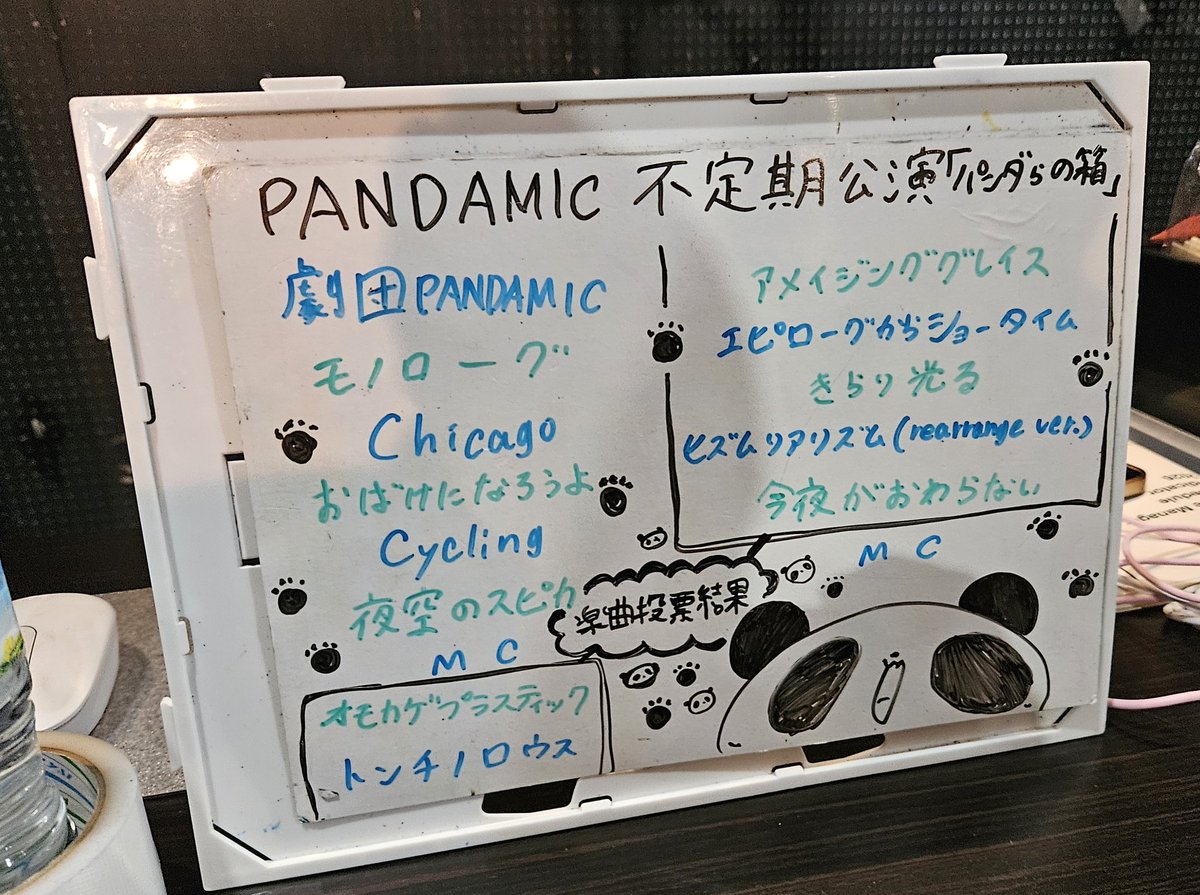 PANDAMIC 不定期公演「パンダらの箱」
劇団PANDAMIC
モノローグ
Chicago
おばけになろうよ
Cycling
夜空のスピカ
MC
オモカゲプラスティック
トンチノロウス
アメイジンググレイス
エピローグからショータイム
きらり光る
ヒズムリアリズム(rearrange ver.)
今夜がおわらない
MC
楽曲投票結果